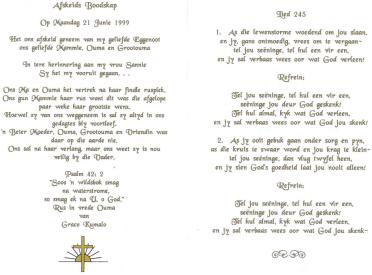 Afskeids Boodskap
Op Maandag 21 Junie 1999
Het ons afskeid geneem van my geliefde Eggenoot
ons geliefde Mammie, Ouma en Grootouma
In tere herinnering aan my vrou Sannie
Sy het my vooruit gegaan. . .
Ons Ma en Ouma het vertrek na haar finale rusplek.
Ons gun Mammie haar rus want dit was die afgelope
paar weke haar grootste wens.
Hoewel sy van ons weggeneem is sal sy altyd in ons
gedagtes bly voortleef.
'n Beter Moeder, Ouma, Grootouma en Vriendin was
daar op die aarde nie.
Ons sal na haar verlang, maar ons weet sy is nou
veilig by die Vader.
Psalm 42: 2
"Soos 'n wildsbok smag
na waterstrome,
so smag ek na U, o God."
Rus in vrede Ouma
van
Grace Kumalo
Lied 245
1. As die lewenstorme woedend om jou slaan,
en jy, gans ontmoedig, vrees om te vergaan-
tel jou seëninge, tel hul een vir een,
en jy sal verbaas wees oor wat God jou leen!
Refrein:
Tel jou seëninge, tel hul een vir een,
seëninge jou deur God geskenk!
Tel hul almal, kyk wat God verleen,
en jy sal verbaas wees oor wat God jou skenk!
2. As jy ooit gebuk gaan onder sorg en pyn,
as die kruis te swaar word en jou krag te klein-
tel jou seëninge, dan vlug twyfel heen,
en jy sien God's goedheid laat jou nooit alleen!
Refrein:
Tel jou seëninge, tel hul een vir een,
seëninge jou deur God geskenk!
Tel hul almal, kyk wat God verleen,
en jy sal verbaas wees oor wat God jou skenk-